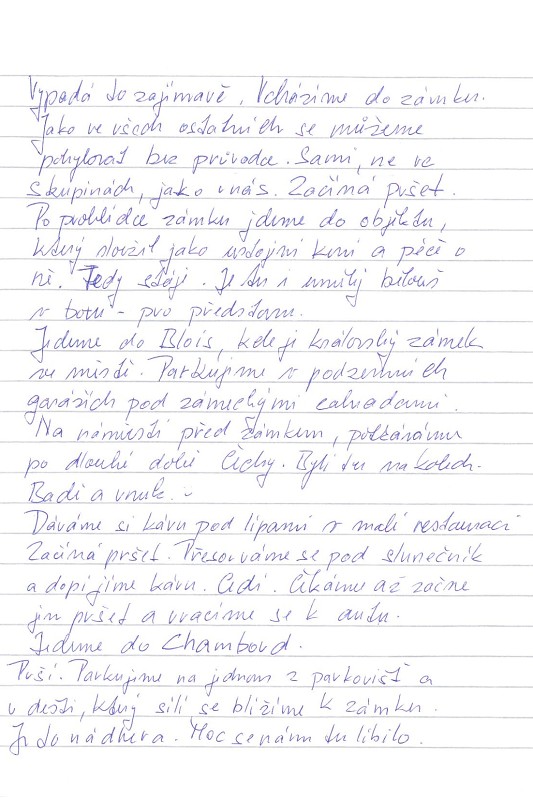 Vypadá to zajímavě. Vcházíme do zámku.
Jako ve všech ostatních se můžeme
pohybovat bez průvodce. Sami, ne ve
skupinách, jako u nás. Začíná pršet.
Po prohlídce zámku jdeme do objektu,
který sloužil jako ustájní koní a péče o
ně. Tedy stáje. Je tu i umělý bělouš
v botu - pro představu.
Jedeme do Blois, kde je královský zámek
ve městě. Parkujeme v podzemních
garážích pod zámeckými zahradami.
Na náměstí před zámkem, potkáváme
po dlouhé době Čechy. Byli tu na kolech.
Badi a vnuk.
Dáváme si kávu pod lipami v malé restauraci
Začíná pršet. Přesouváme se pod slunečník
a dopíjíme kávu. Čekáme až začne
jen pršet a vracíme se k autu.
Jedeme do Chambord.
Prší. Parkujeme na jednom z parkovišť a
v dešti, který sílí se blížíme k zámku.
Je to nádhera. Moc se nám tu líbilo.